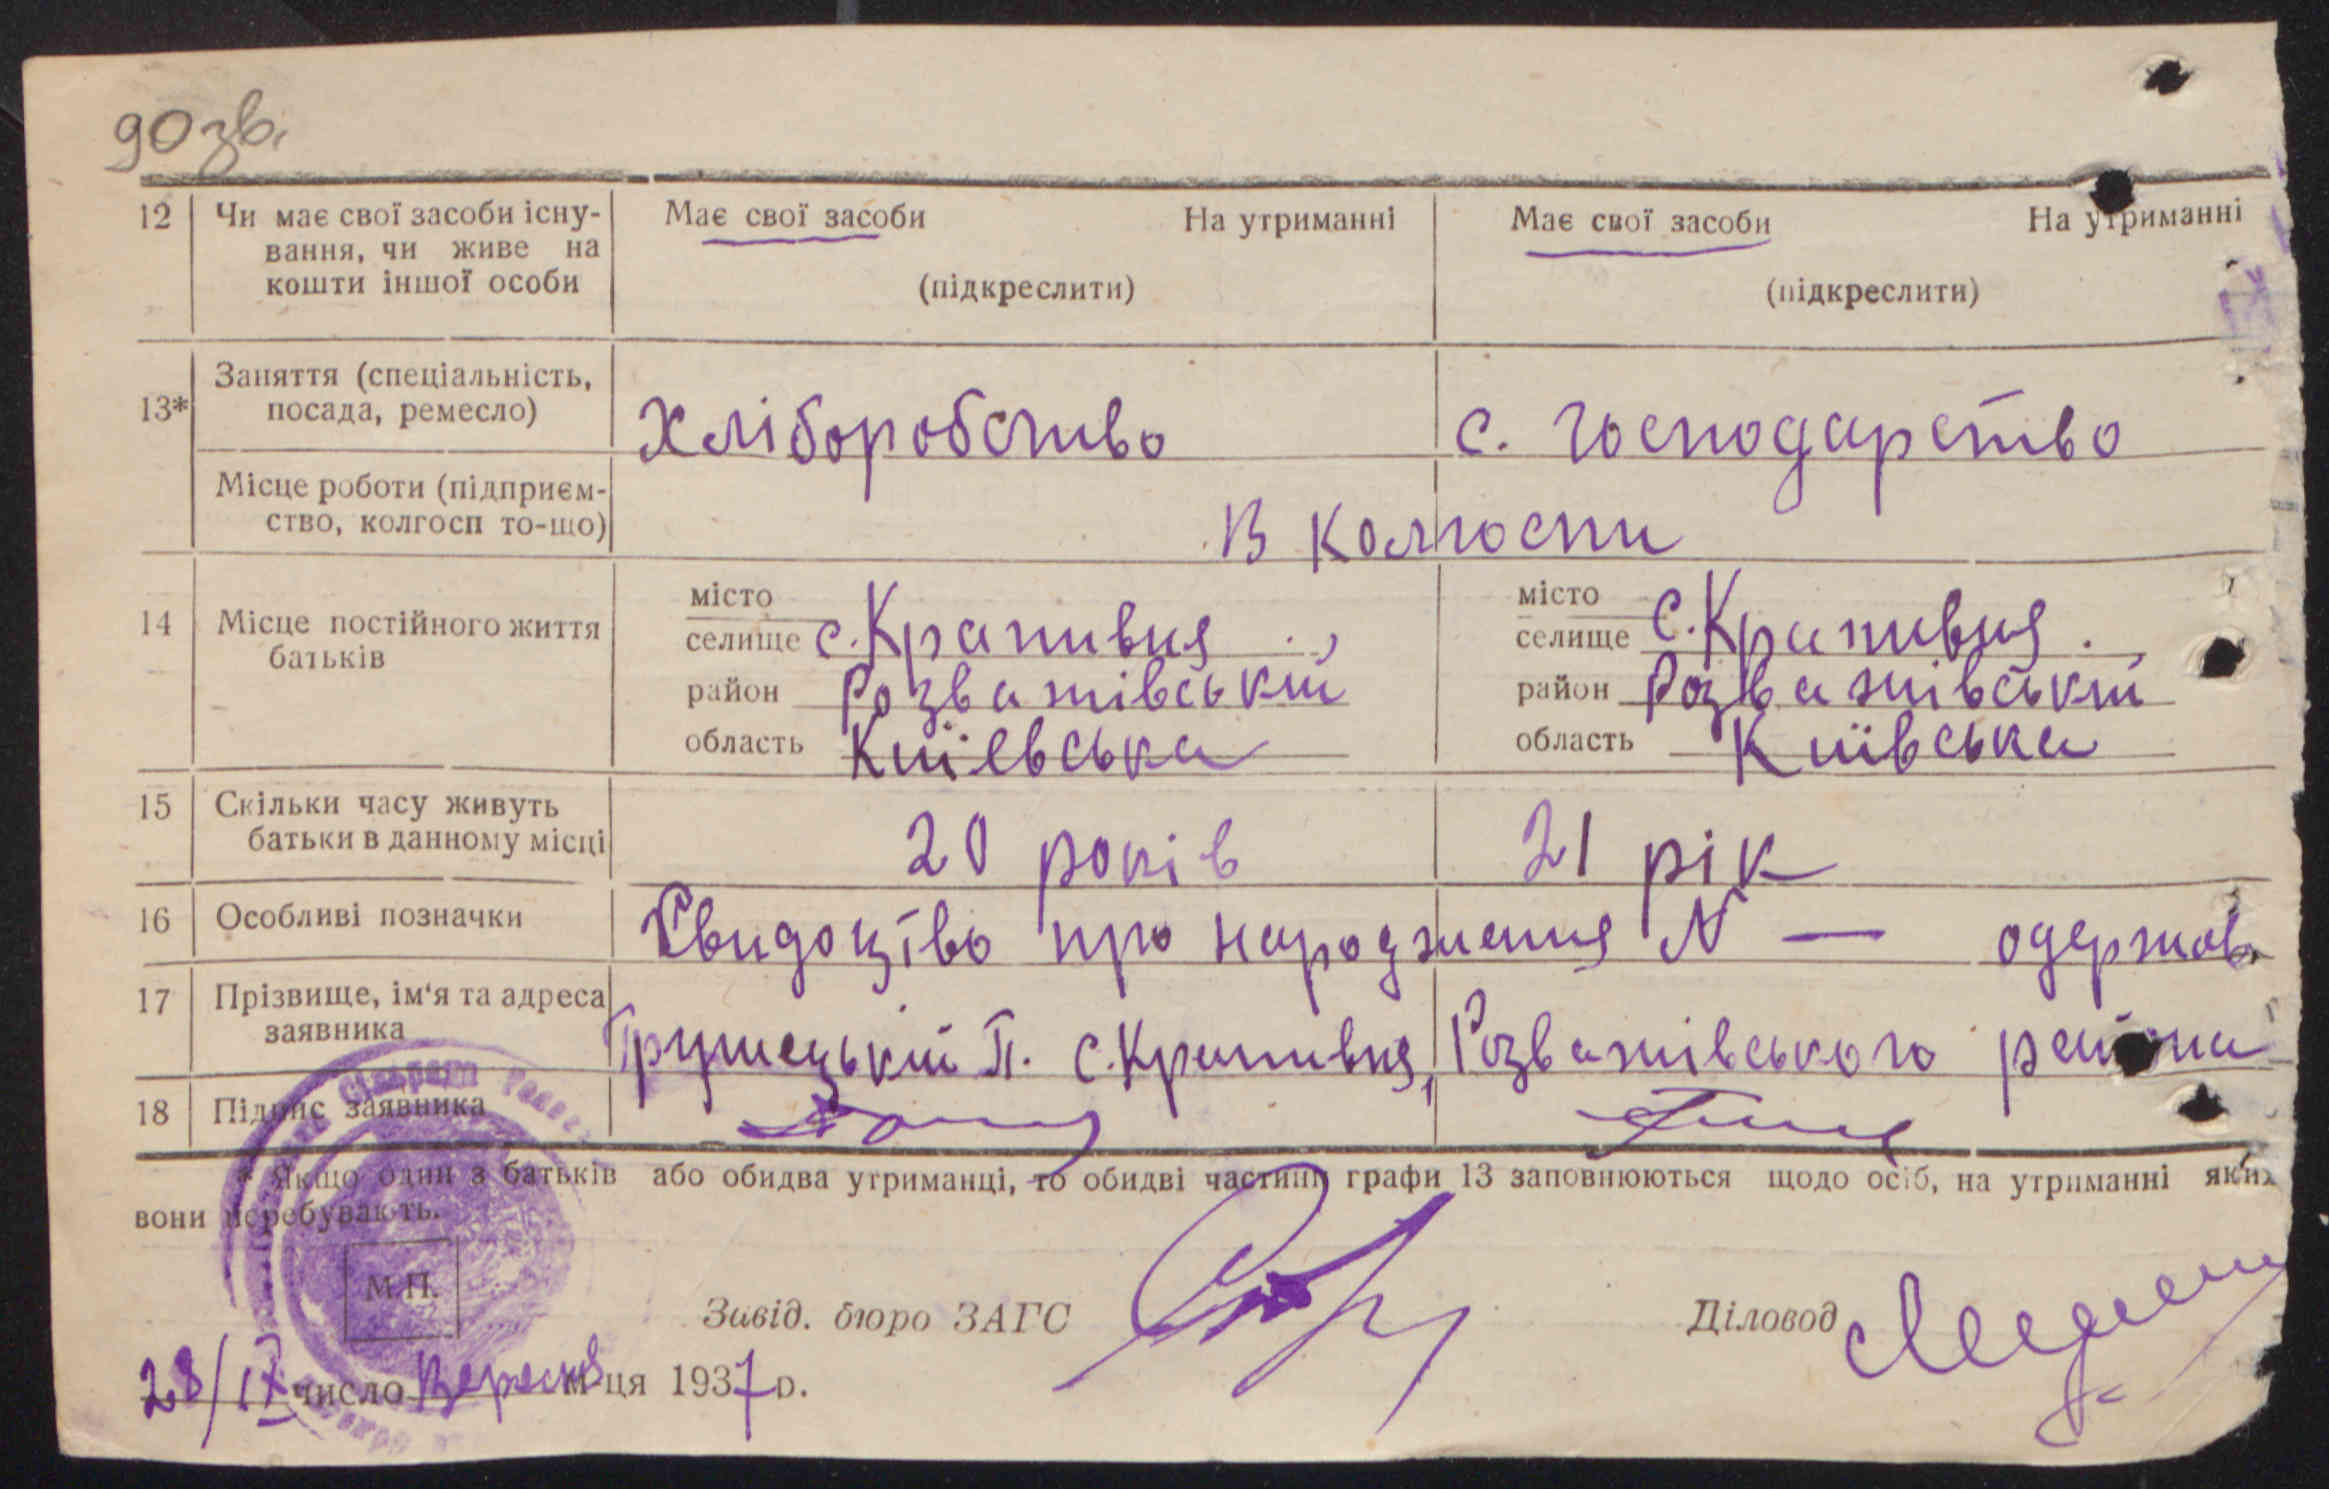 90зв.
12 Чи має свої засоби існу- Має свої засоби На утриманні Має свої засоби На утриманні
вання, чи живе на
кошти іншої особи (підкреслити) (підкреслити)
Заняття (спеціальність,
13* посада, ремесло) Хліборобство с. господарство
Місце роботи (підприєм-
ство, колгосп то-що) В колгоспи
місто місто
14 Місце постійного життя селище с. Крапивня селище с. Крапивня
батьків район Розважівський район Розважівський
область Київська область Київська
15 Скільки часу живуть
батьки в данному місці 20 років 21 рік
16 Особливі позначки Свидоцтво про народження N — одержав
17 Прізвище, ім'я та адреса
заявника Грушецький П. с. Крапивня, Розважівського района
18 Підпис заявника
* Якщо один з батьків або обидва утриманці, то обидві частини графи 13 заповнюються щодо осіб, на утриманні яких
вони перебувають.
М.П.
Завід. бюро ЗАГС Діловод
28/IX число Вересня м-ця 1937 р.